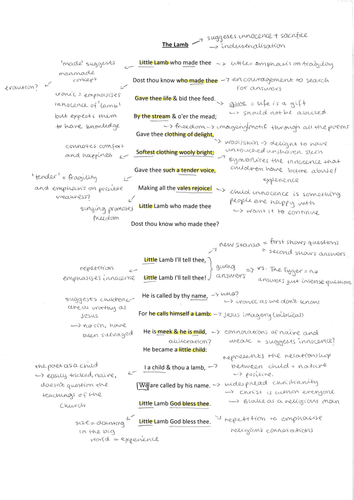 The Lamb
→ suggests innocence & sacrifice
→ industrialisation
'made' suggests
manmade
concept
evolution?
Little Lamb who made thee
→ little = emphasis on fragility
Dost thou know who made thee
→ encouragement to search
for answers
ironic = emphasises
innocence of 'lamb'
but expects them
to have knowledge
Gave thee life & bid thee feed.
→ gave = life is a gift
→ should not be abused
By the stream & o'er the mead;
→ freedom → imagery/nature through all the poem
Gave thee clothing of delight,
Softest clothing wooly bright;
connotes comfort
and happiness
→ delight to have
symbolises the innocence that
children have before abuse/
experience
Gave thee such a tender voice,
'tender' = fragility
and emphasis on possible
weakness?
Making all the vales rejoice!
→ child innocence is something
people are happy with
→ want it to continue
singing promotes
freedom
Little Lamb who made thee
Dost thou know who made thee?
new stanza = first shows questions
= second shows answers
Little Lamb I'll tell thee,
Little Lamb I'll tell thee!
repetition
emphasises innocence
giving
answers
→ vs. The Tyger = no
answers just intense questions
He is called by thy name,
→ who?
→ ironic as we don't know
suggests children
are as worthy as
Jesus
→ no sin, have
been salvaged
For he calls himself a Lamb:
→ Jesus imagery (biblical)
He is meek & he is mild,
alliteration?
→ connotations of naive and
weak = suggests innocence?
He became a little child:
represents the relationship
between child + nature
→ positive.
I a child & thou a lamb,
the poet as a child
→ easily tricked, naive,
doesn't question the
teachings of the
Church
We are called by his name.
→ widespread christianity
→ Christ is within everyone
→ Blake as a religious man
Little Lamb God bless thee.
Little Lamb God bless thee.
→ repetition to emphasise
religious connotations
size = daunting
in the big
world = experience